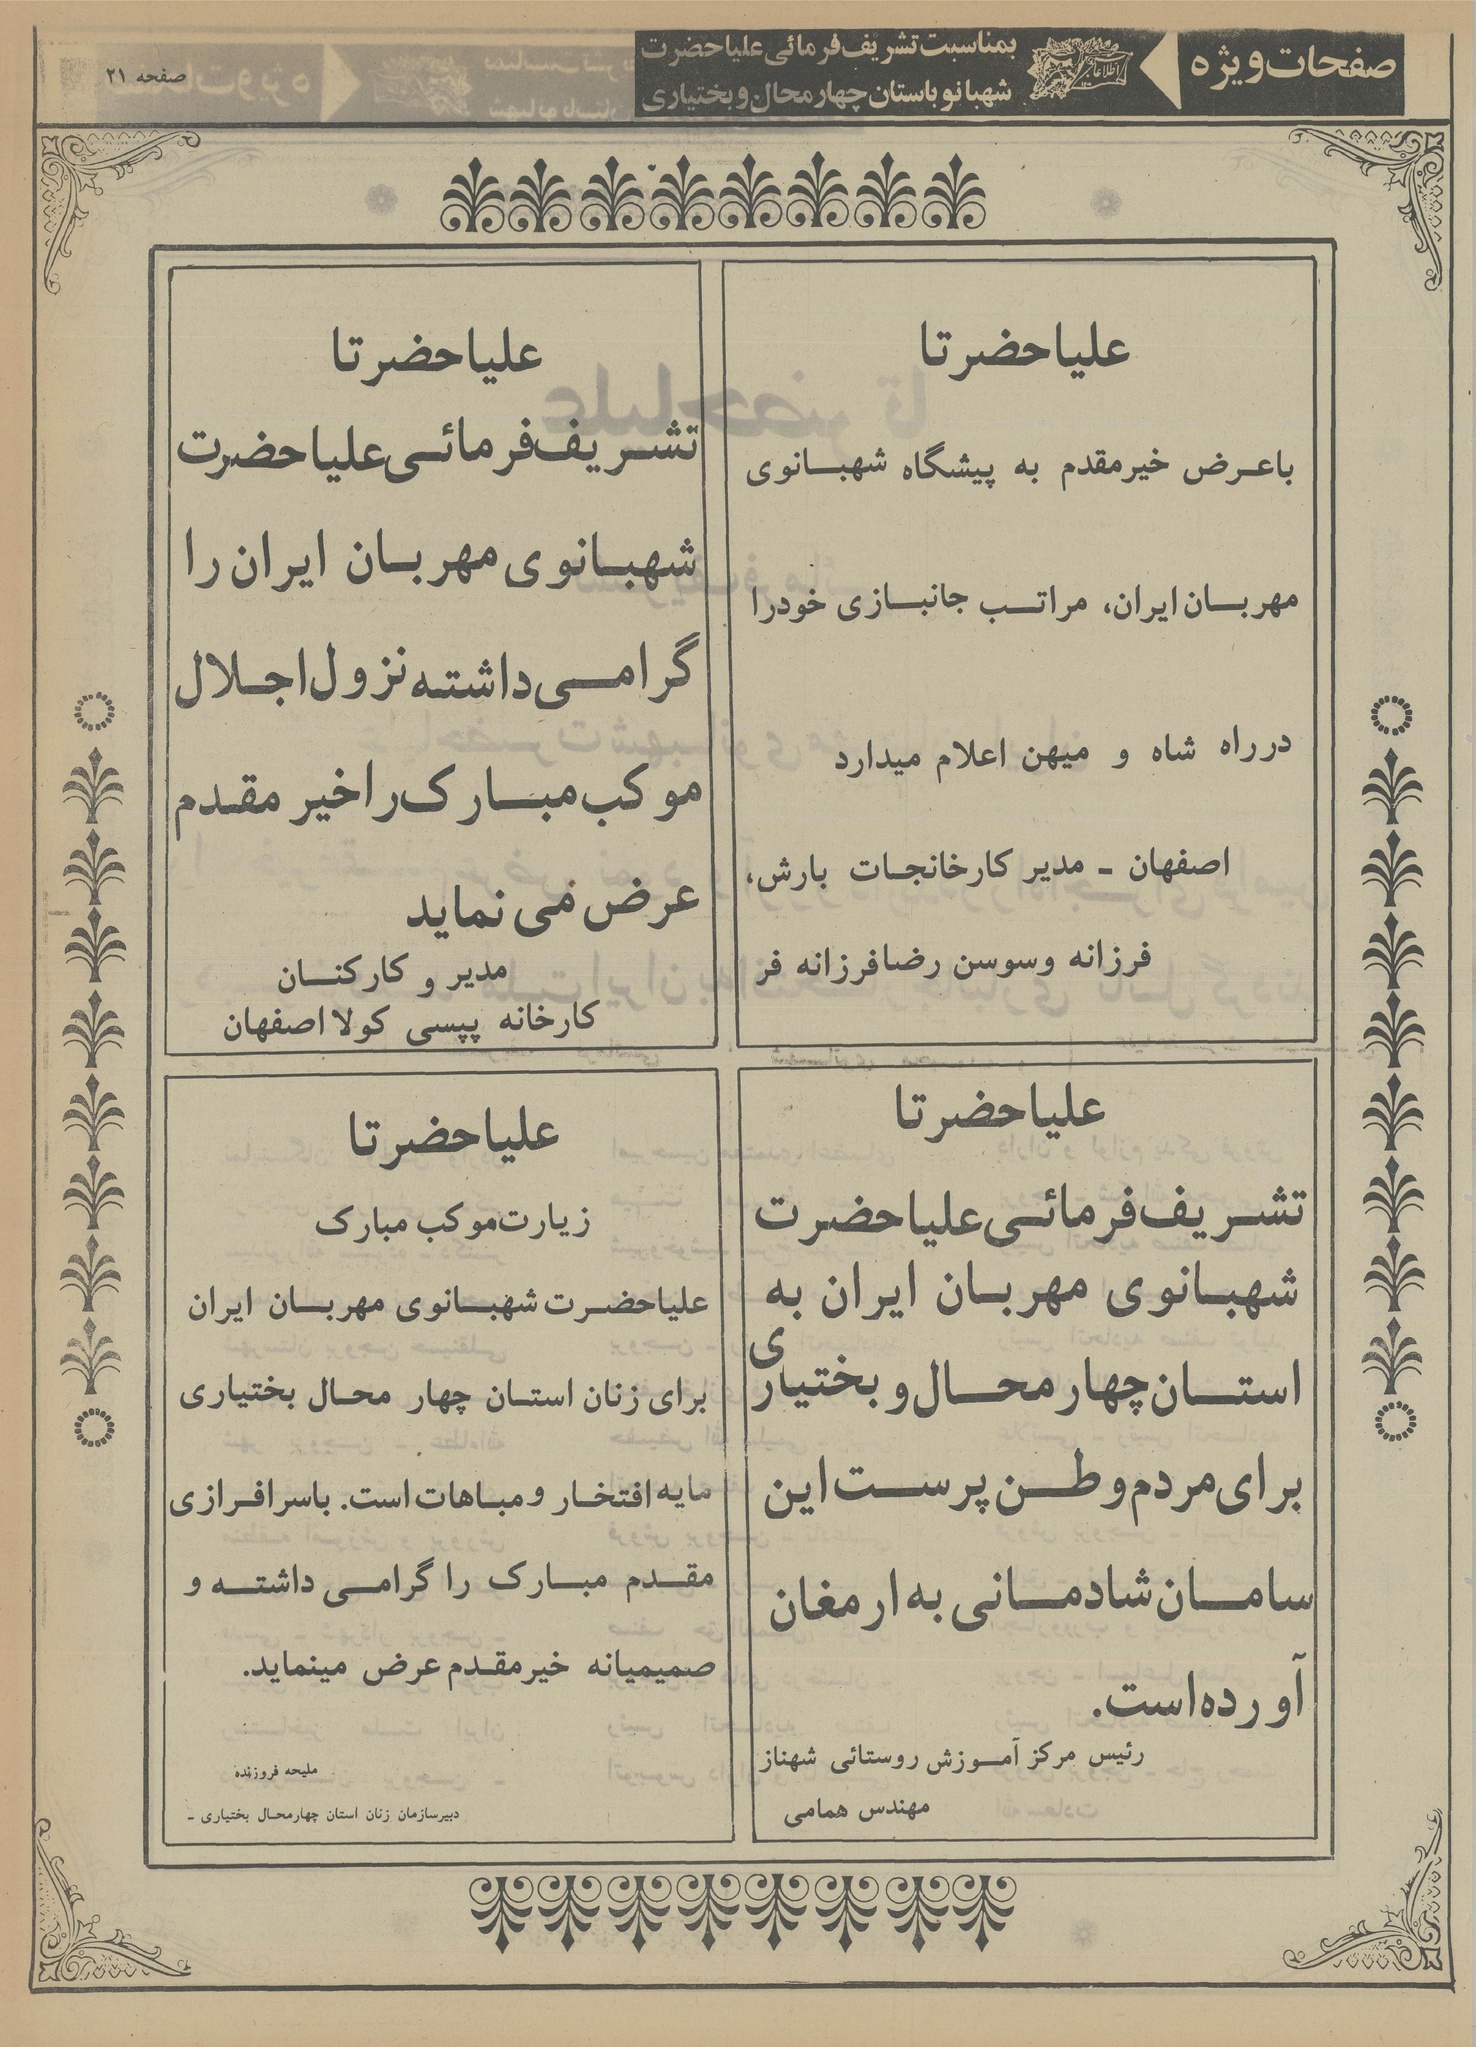 صفحات ویژه
اطلاعات
بمناسبت تشریف‌فرمائی علیاحضرت
شهبانو باستان چهارمحال و بختیاری
صفحه ۲۱
علیاحضرتا
باعرض خیرمقدم به پیشگاه شهبانوی
مهربان ایران، مراتب جانبازی خودرا
درراه شاه و میهن اعلام میدارد
اصفهان - مدیر کارخانجات بارش،
فرزانه وسوسن رضافرزانه فر
علیاحضرتا
تشریف‌فرمائی علیاحضرت
شهبانوی مهربان ایران را
گرامی داشته نزول اجلال
موکب مبارک را خیر مقدم
عرض می نماید
مدیر و کارکنان
کارخانه پپسی کولا اصفهان
علیاحضرتا
تشریف‌فرمائی علیاحضرت
شهبانوی مهربان ایران به
استان چهارمحال و بختیاری
برای مردم وطن پرست این
سامان شادمانی به ارمغان
آورده است.
رئیس مرکز آموزش روستائی شهناز
مهندس همامی
علیاحضرتا
زیارت موکب مبارک
علیاحضرت شهبانوی مهربان ایران
برای زنان استان چهار محال بختیاری
مایه افتخار و مباهات است. باسرافرازی
مقدم مبارک را گرامی داشته و
صمیمیانه خیرمقدم عرض مینماید.
ملیحه فروزنده
دبیرسازمان زنان استان چهارمحال بختیاری -